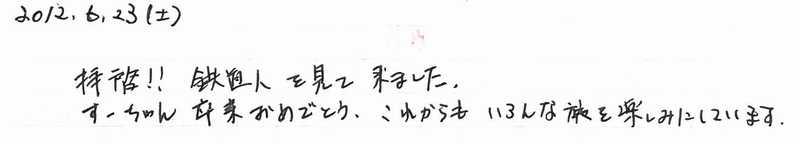 2012.6.23(土)
拝啓!! 鉄道人を見て来ました.
すーちゃん卒業おめでとう、これからもいろんな旅を楽しみにしています.